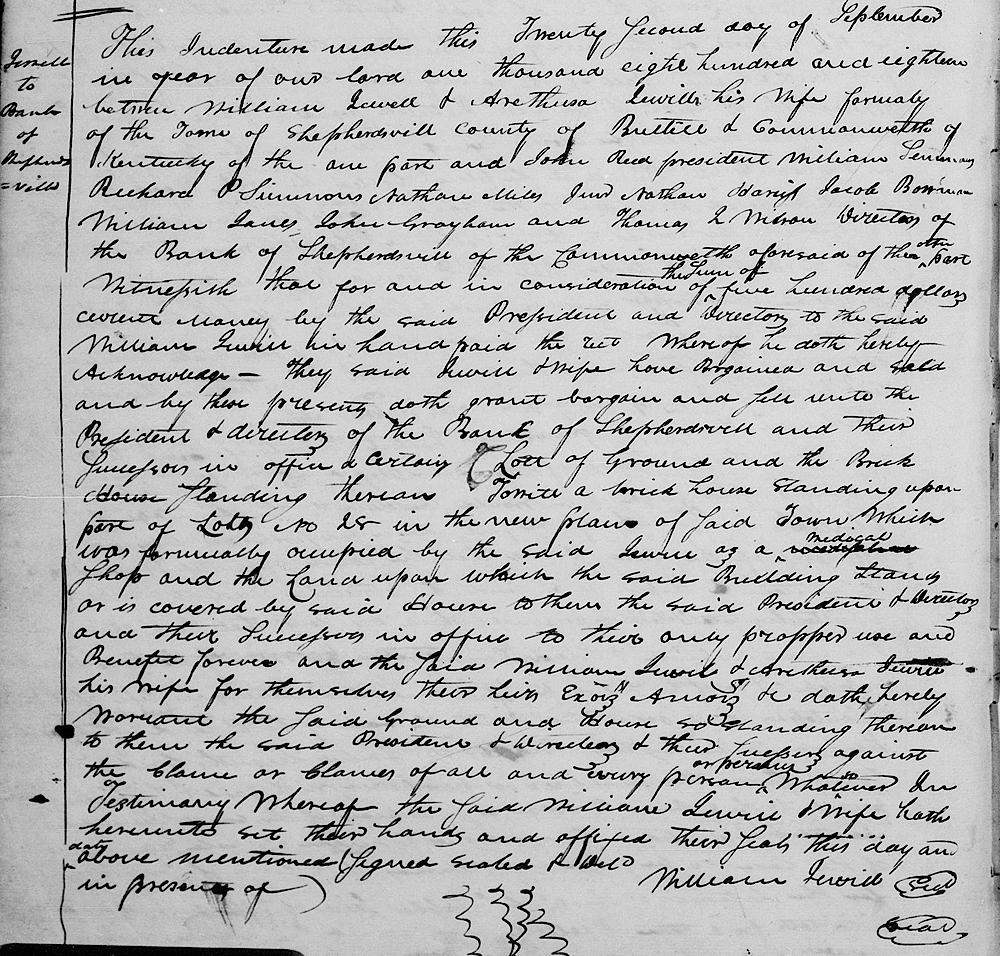 Jewell
to
Bank
of
Shepherds
=ville
This Indenture made this Twenty Second day of September
in year of our lord one thousand eight hundred and eighteen
between William Jewell & Arethusa Jewill his Wife formaly
of the Town of Shepherdsvill County of Bullitt & Commonwelth of
Kentucky of the one part and John Reed president William Simmons
Richard P Simmons Nathan Miles Junr Nathan Harris Jacob Bowman
William Janes John Grayham and Thomas Q Wilson Directors of
the Bank of Shepherdsvill of the Commonwelth aforesaid of the other part
Witnessith that for and in consideration of the Sum of five hundred dollars
current Money by the said President and Directors to the said
William Jewill in hand paid the rect Whereof he doth hereby
Acknowledge — they said Jewill & Wife have Bargained and sold
and by these presents doth grant bargain and sell unto the
President & directors of the Bank of Shepherdsvill and their
Successors in office a Certain Lott of Ground and the Brick
House Standing thereon Towitt a brick house Standing upon
part of Lott No 28 in the new plan of said Town Which
was formerally occupied by the said Jewill as a medical
Shop and the Land upon which the said Building Stands
or is covered by said House to them the said President & Directors
and their Successors in office to their only propper use and
Benefit forever and the said William Jewill & Arethusa Jewill
his Wife for themselves their heirs Exors Amors &c doth hereby
Warrant the said Ground and House so standing thereon
to them the said President & Directors & their Sucessors against
the Clame or Clames of all and every person or persons Whatever In
Testimony Whereof the said William Jewill & Wife hath
hereunto set their hands and affixed their Seals this day and
date above mentioned (Signed sealed & Deld
in presents of ) William Jewill Seal
Seal